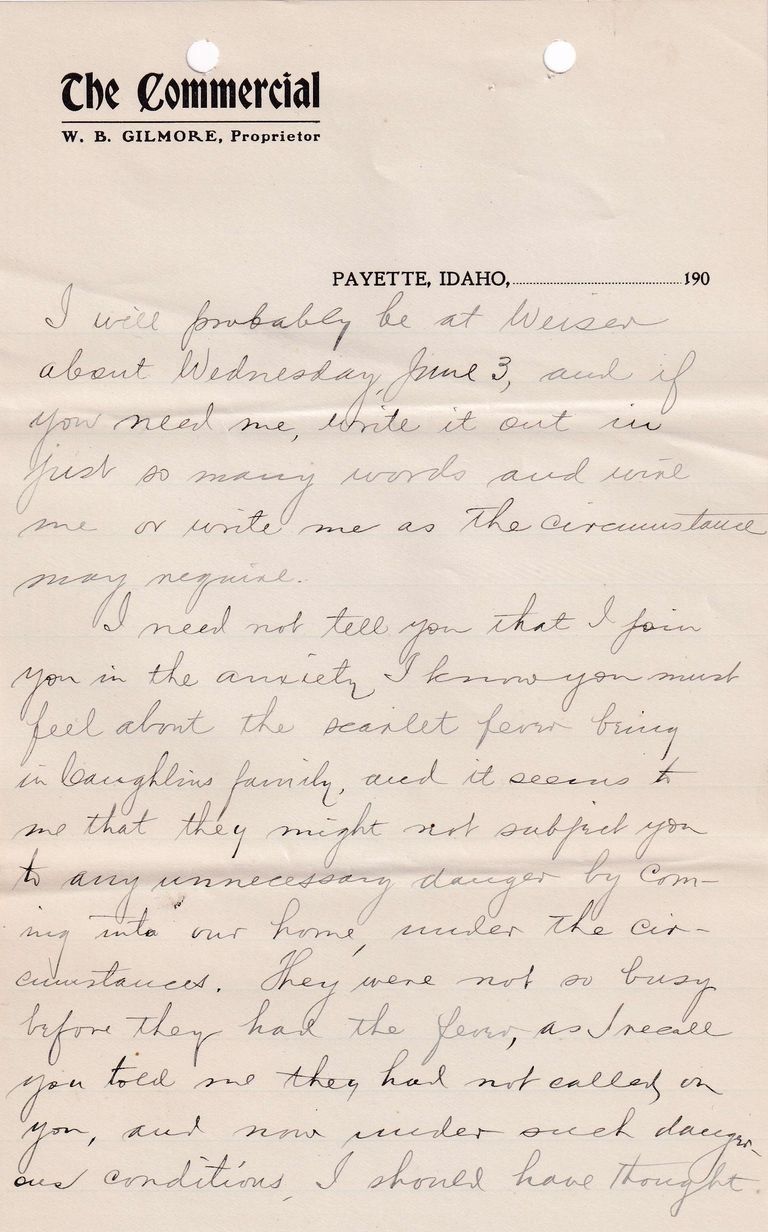 The Commercial
W. B. GILMORE, Proprietor
PAYETTE, IDAHO,..............................190
I will probably be at Weiser
about Wednesday, June 3, and if
you need me, write it out in
just so many words and wire
me or write me as the circumstance
may require.
I need not tell you that I join
you in the anxiety I know you must
feel about the scarlet fever being
in Caughlins family, and it seems to
me that they might not subject you
to any unnecessary danger by com-
ing into our home, under the cir-
cumstances. They were not so busy
before they had the fever, as I recall
you told me they had not called on
you, and now under such danger-
ous conditions, I should have thought